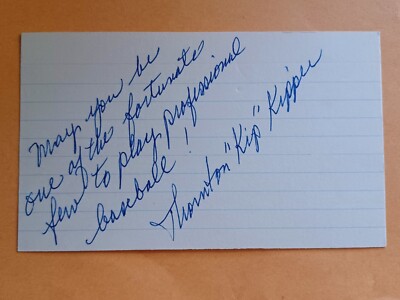 May you be
one of the fortunate
few to play professional
baseball!
Thornton "Kip" Kipper